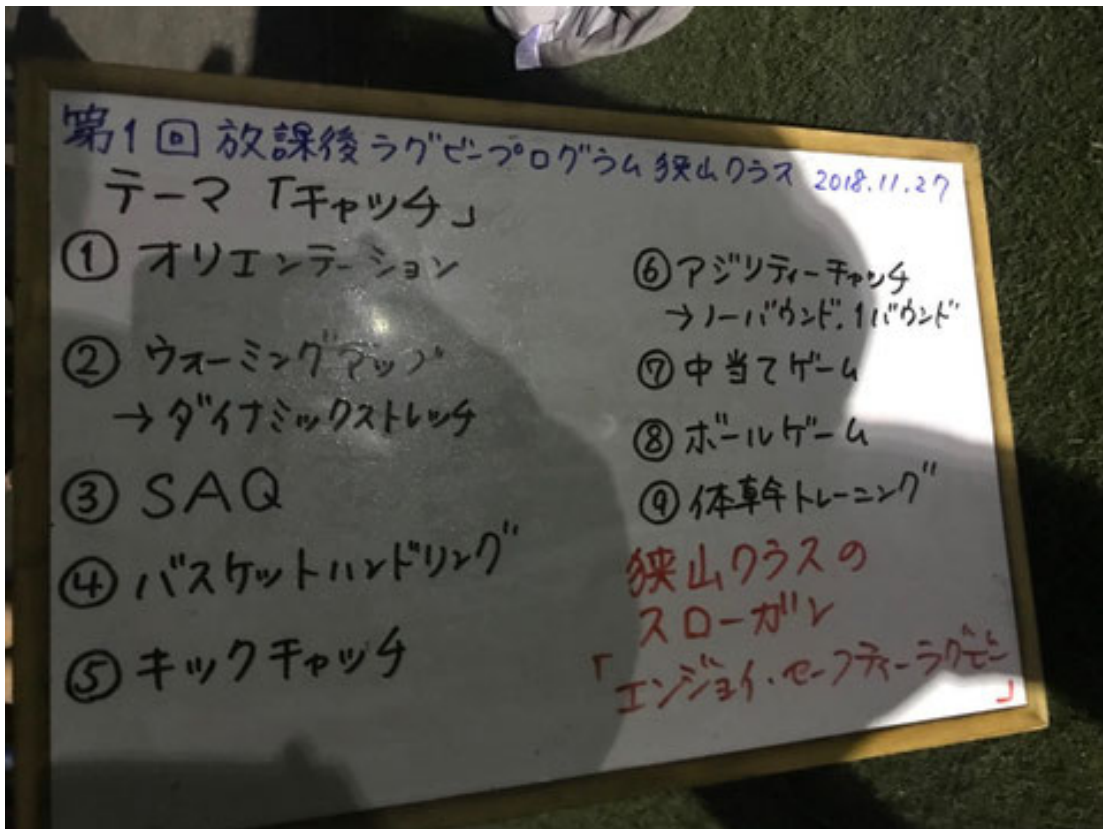 第1回 放課後ラグビープログラム 狭山クラス 2018.11.27
テーマ「キャッチ」
① オリエンテーション
② ウォーミングアップ
→ダイナミックストレッチ
③ SAQ
④ バスケットハンドリング
⑤ キックキャッチ
⑥ アジリティーキャッチ
→ノーバウンド.1バウンド
⑦ 中当てゲーム
⑧ ボールゲーム
⑨ 体幹トレーニング
狭山クラスの
スローガン
「エンジョイ・セーフティーラグビー」